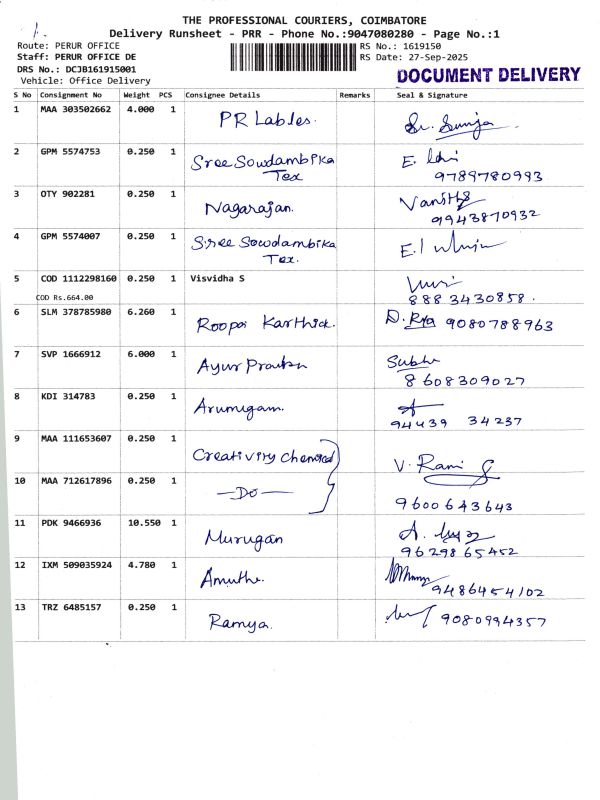 THE PROFESSIONAL COURIERS, COIMBATORE
Delivery Runsheet - PRR - Phone No.:9047080280 - Page No.:1
Route: PERUR OFFICE
RS No.: 1619150
Staff: PERUR OFFICE DE
RS Date: 27-Sep-2025
DRS No.: DCJB161915001
DOCUMENT DELIVERY
Vehicle: Office Delivery
S No Consignment No Weight PCS Consignee Details Remarks Seal & Signature
1 MAA 303502662 4.000 1 PR Lables.
2 GPM 5574753 0.250 1 Sree Sowdambika
Tex
9789780993
3 OTY 902281 0.250 1 Nagarajan.
9943870932
4 GPM 5574007 0.250 1 Sree Sowdambika
Tex.
5 COD 1112298160 0.250 1 Visvidha S
COD Rs.664.00
888 3430858.
6 SLM 378785980 6.260 1 Karthick. 9080788963
7 SVP 1666912 6.000 1 Ayur
8608309027
8 KDI 314783 0.250 1 Arumugam.
94439 34237
9 MAA 111653607 0.250 1 Creativity Chemical
V. Rani
10 MAA 712617896 0.250 1 —Do—
9600643643
11 PDK 9466936 10.550 1 Murugan
9629865452
12 IXM 509035924 4.780 1
9486454102
13 TRZ 6485157 0.250 1 Ramya. 9080994357